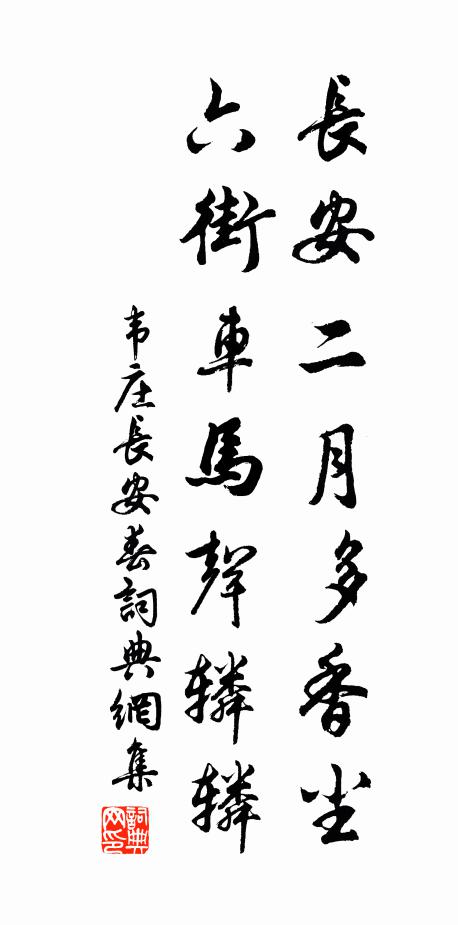 長安二月多香尘
六街車馬聲辚辚
韦庄長安春詞典網集
詞典网印